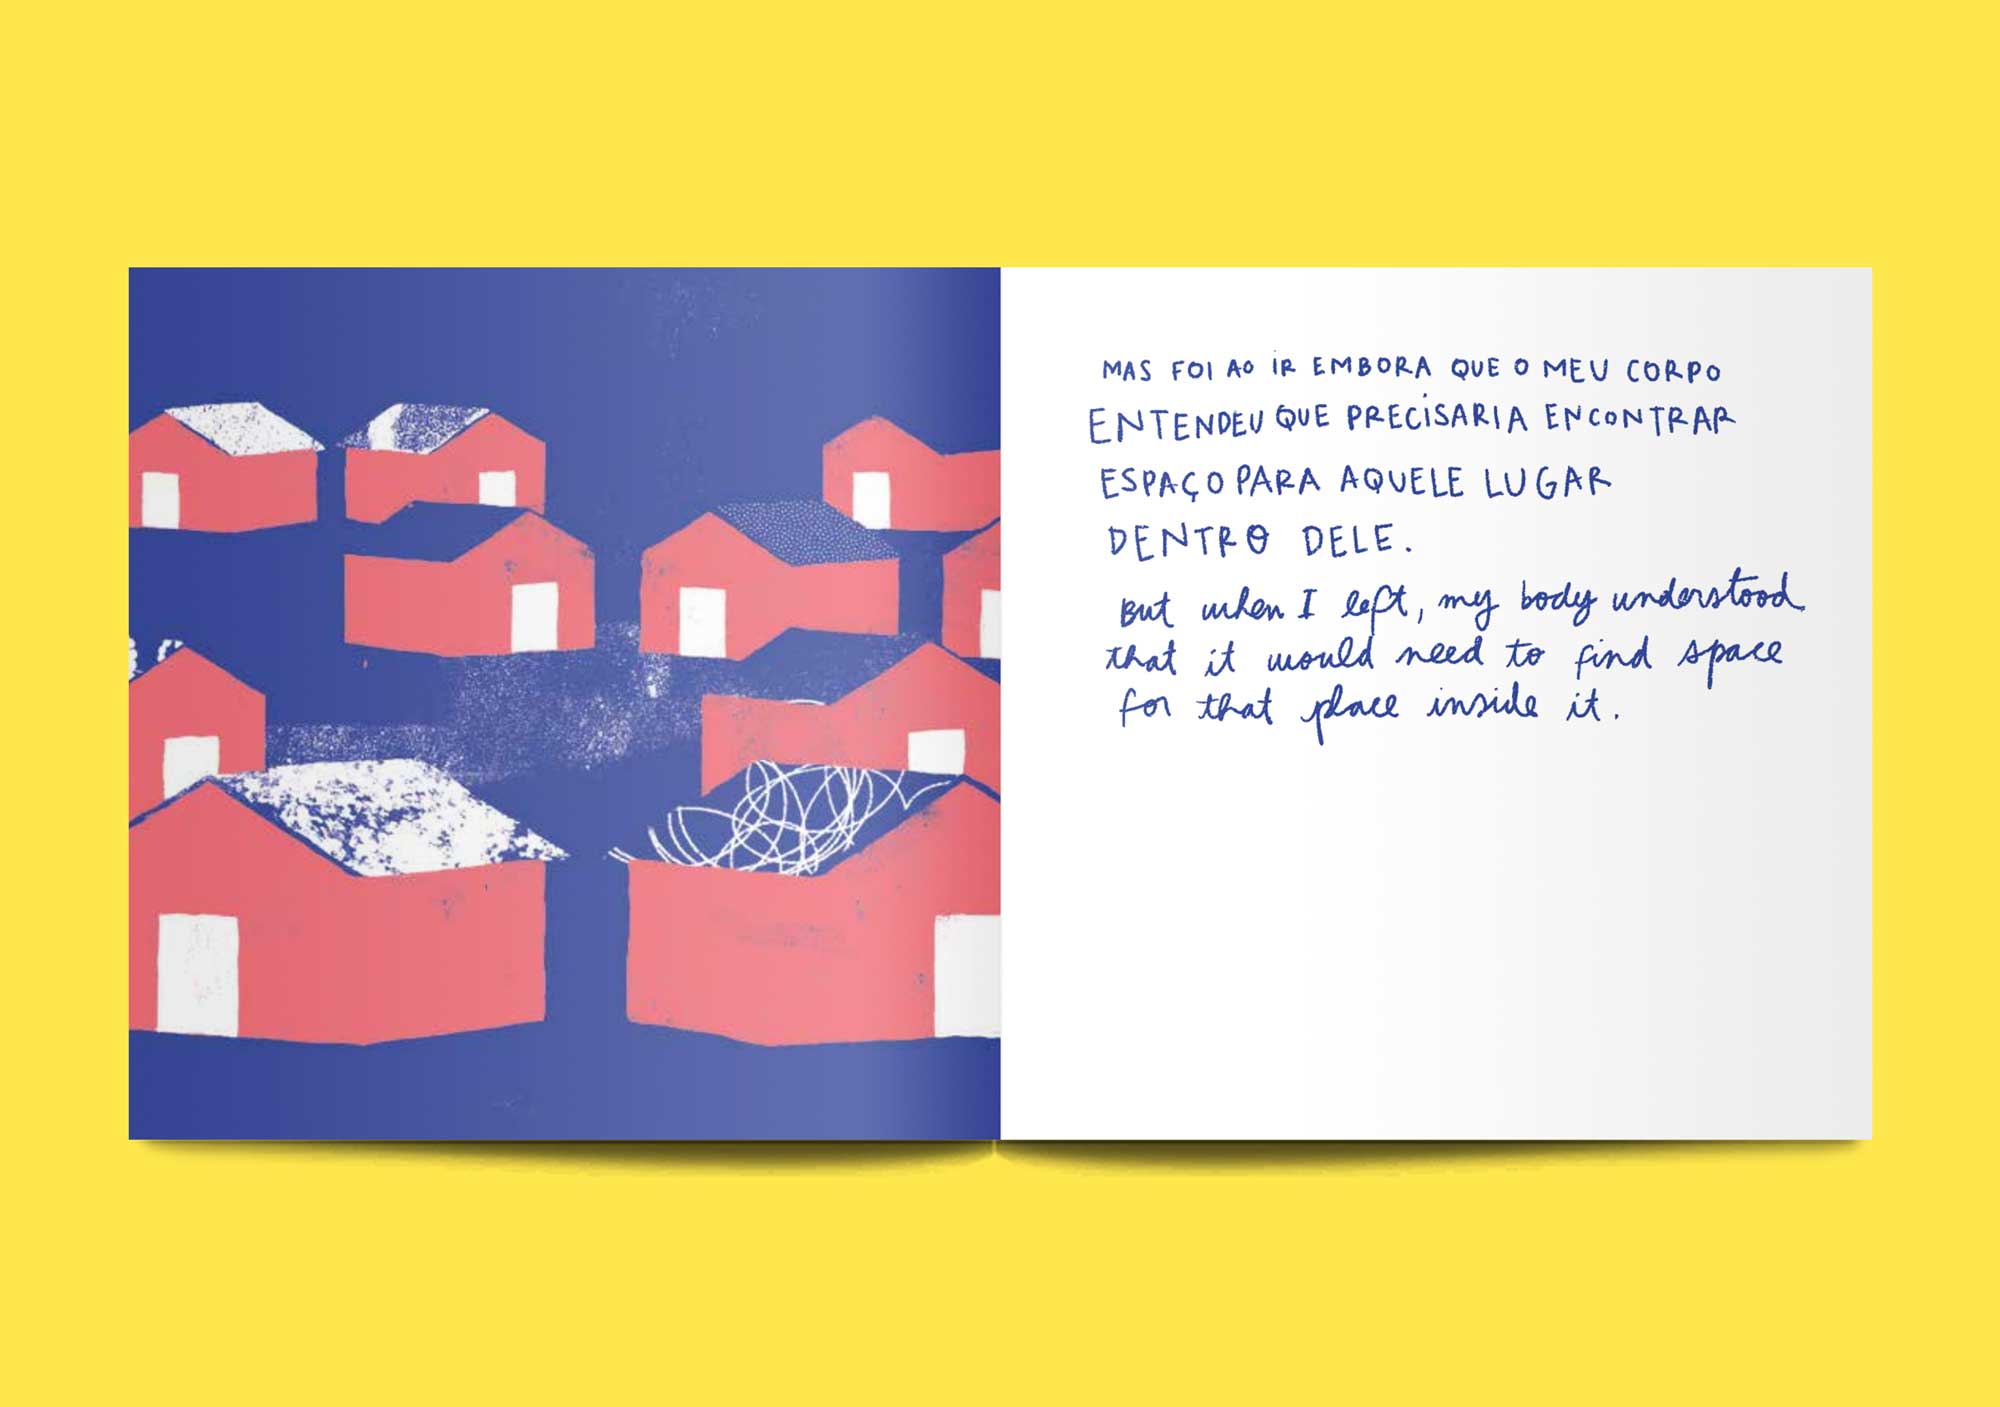 MAS FOI AO IR EMBORA QUE O MEU CORPO
ENTENDEU QUE PRECISARIA ENCONTRAR
ESPAÇO PARA AQUELE LUGAR
DENTRO DELE.
But when I left, my body understood
that it would need to find space
for that place inside it.